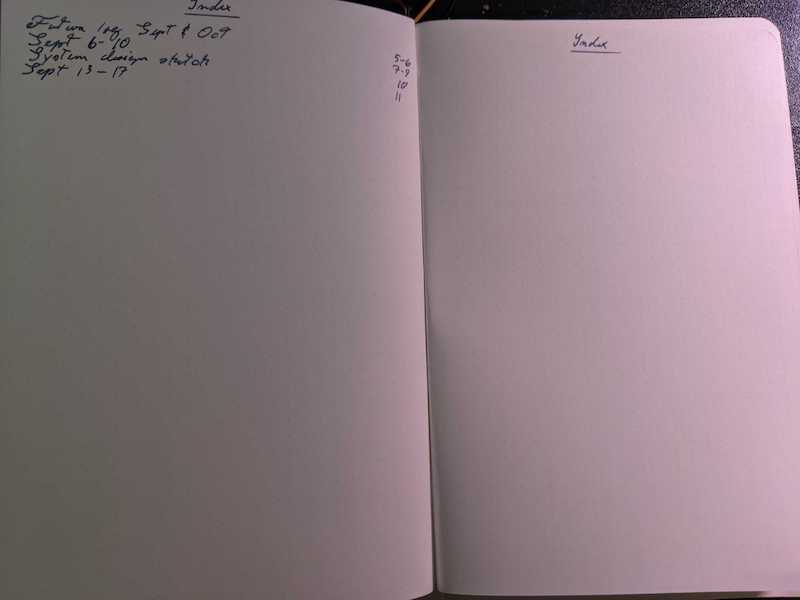 Index
Future log Sept & Oct
Sept 6-10
System design sketch
Sept 13-17
5-6
7-9
10
11
Index